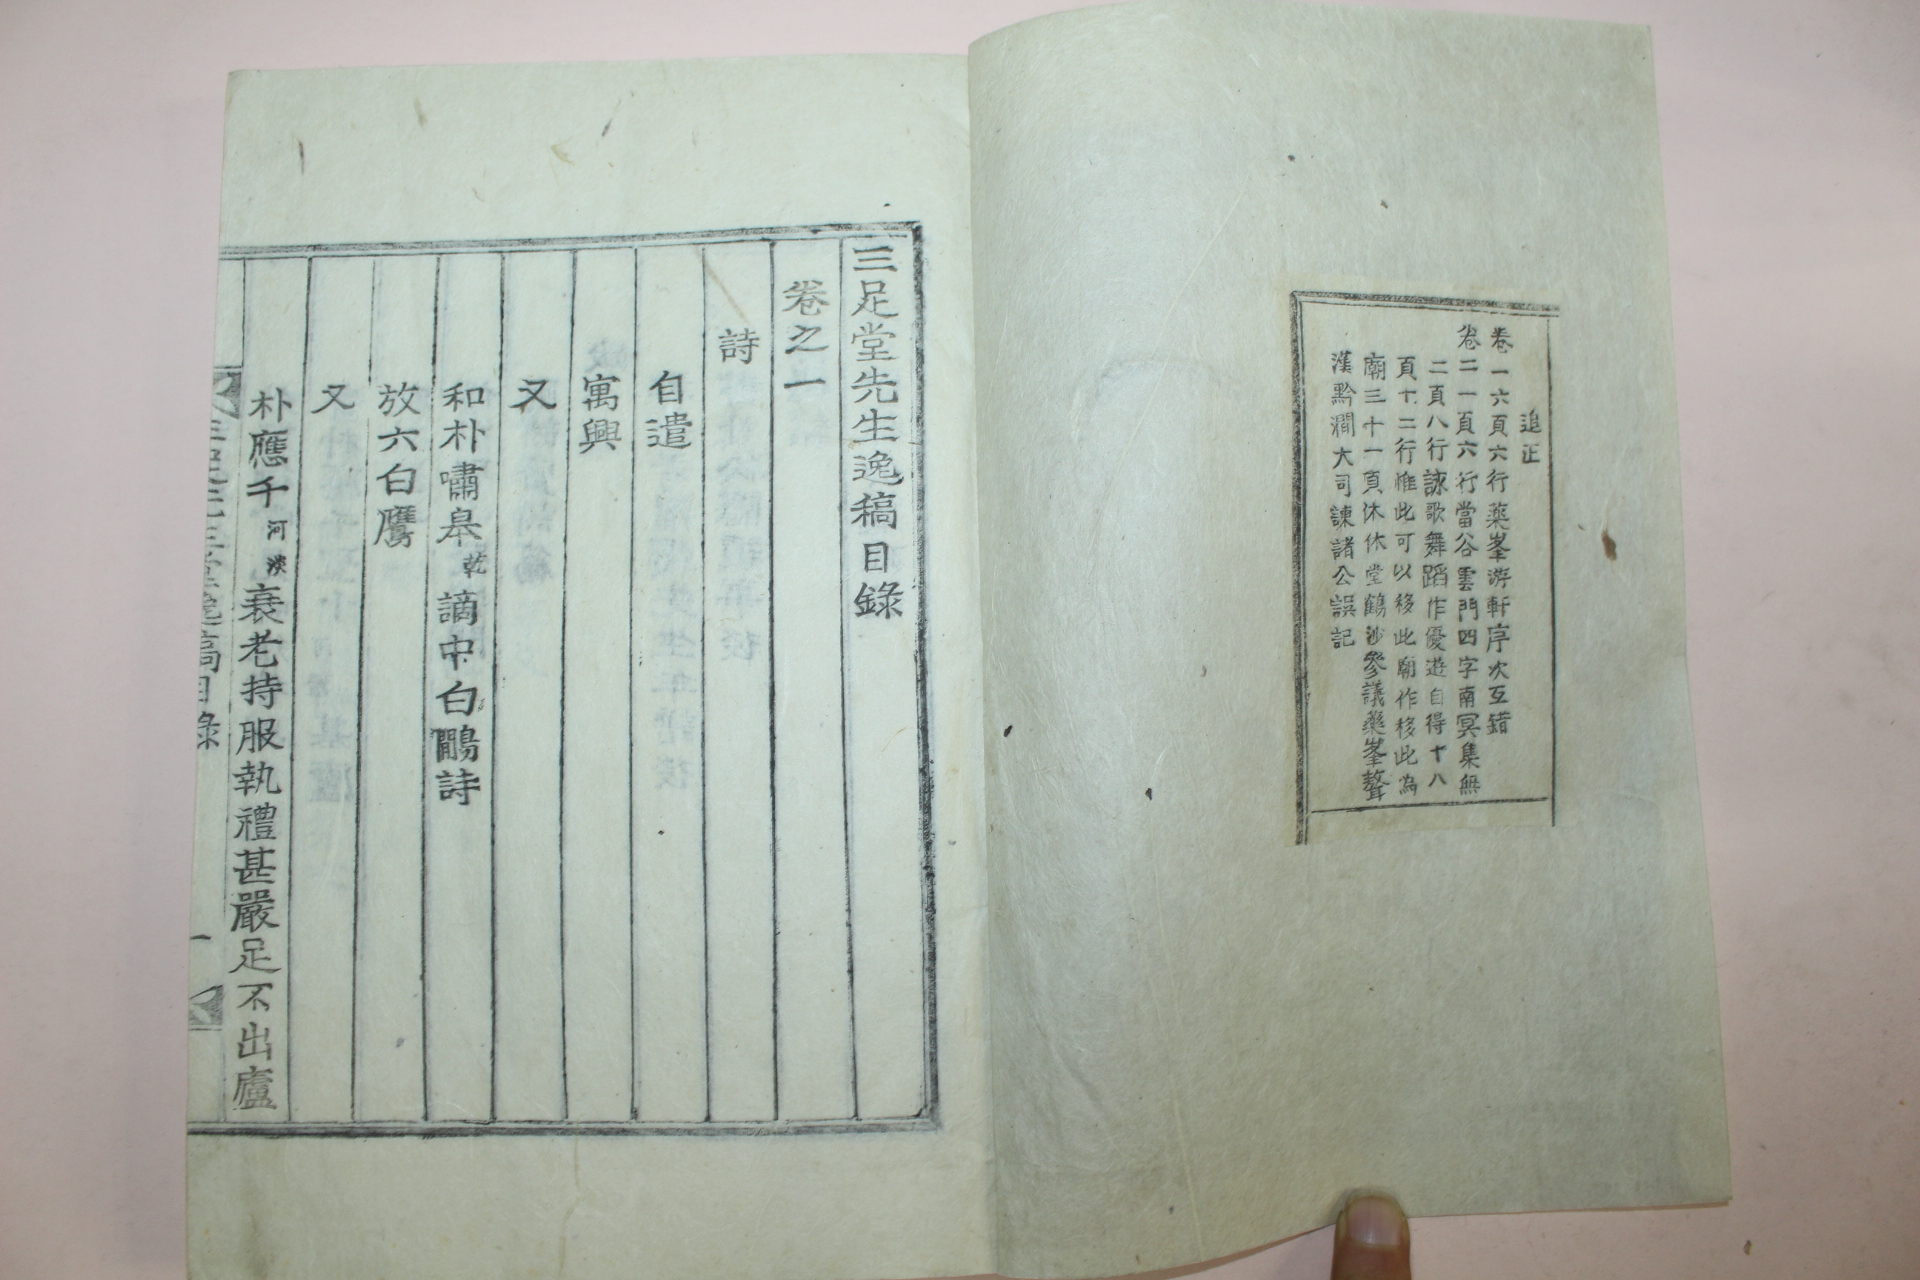 追正
卷一六頁六行藥峯游軒序次互錯
卷二一頁六行當谷雲門四字南冥集無
二頁八行詠歌舞蹈作優遊自得十八
頁十二行惟此可以移此廟作移此為
廟三十一頁休休堂鶴沙參議藥峯聱
漢黔澗大司諫諸公誤記
三足堂先生逸稿目錄
卷之一
詩
自遣
寓興
又
和朴嘯皋乾謫中白鷴詩
放六白鷹
又
朴應千河淡衰老持服執禮甚嚴足不出廬
三足堂逸稿目錄
一